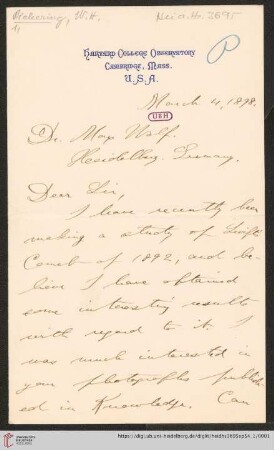 Pickering, W. H.
Heid. Hs. 3695
1,
P
HARVARD COLLEGE OBSERVATORY
CAMBRIDGE, MASS.
U.S.A.
March 4, 1898.
UBH
Dr. Max Wolf.
Heidelberg. Germany.
Dear Sir,
I have recently been
making a study of Swift
Comet of 1892, and be-
lieve I have obtained
some interesting results
with regard to it. I
was much interested in
your photographs publish
ed in Knowledge. Can
https://digi.ub.uni-heidelberg.de/diglit/heidhs3695ppSA_1/0001